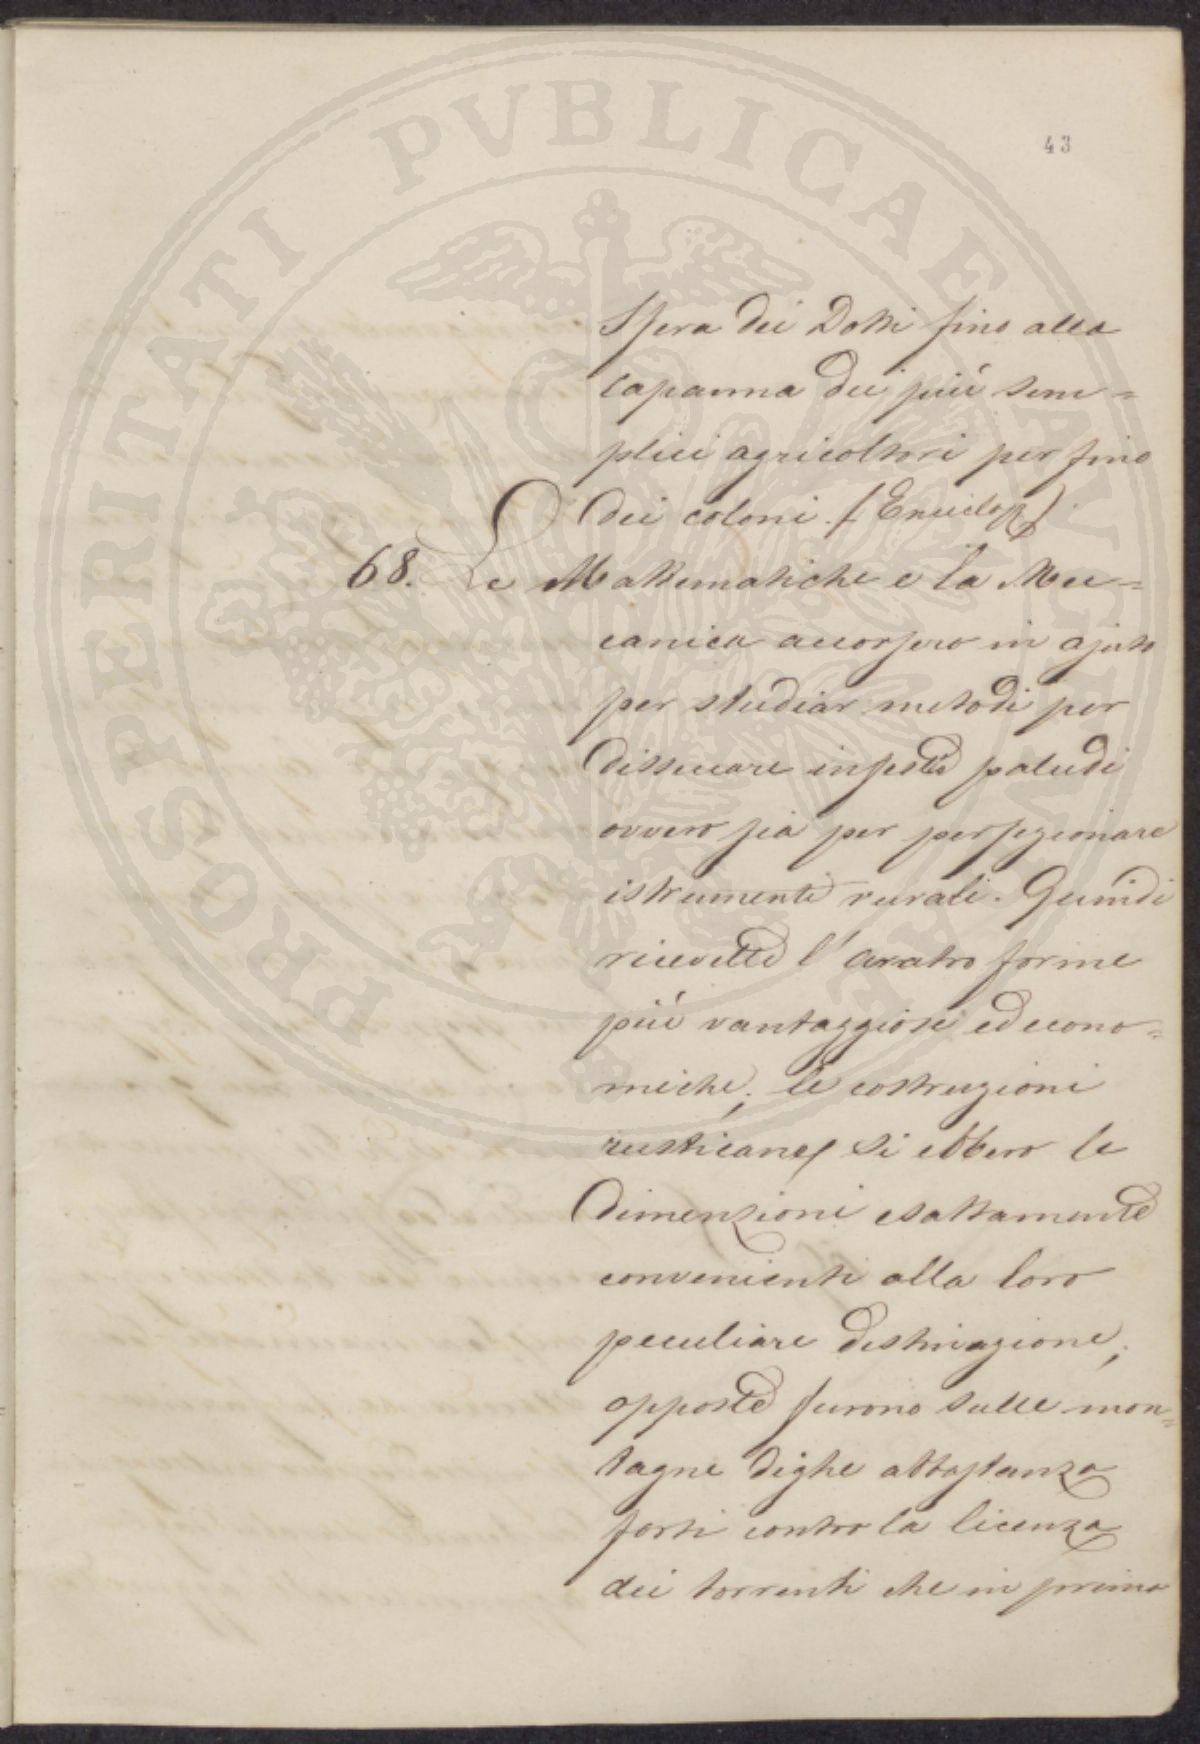 43
sfera dei Dotti fino alla
capanna dei piú sem=
plici agricoltori per fino
dei coloni. (Enciclop).
68. Le Mattematiche e la Mec=
canica accorsero in ajuto
per studiar metodi per
dissecare infeste paludi
ovvero sia per perfezionare
istrumenti rurali. Quindi
ricevette l'aratro forme
piú vantaggiose ed econo=
miche; le costruzioni
rusticane si ebbero le
dimenzioni esattamente
convenienti alla loro
peculiare destinazione;
opposte furono sulle mon=
tagne dighe abbastanza
forti contro la licenza
dei torrenti che in prima
PROSPERITATI PVBLICAE AVGENDAE